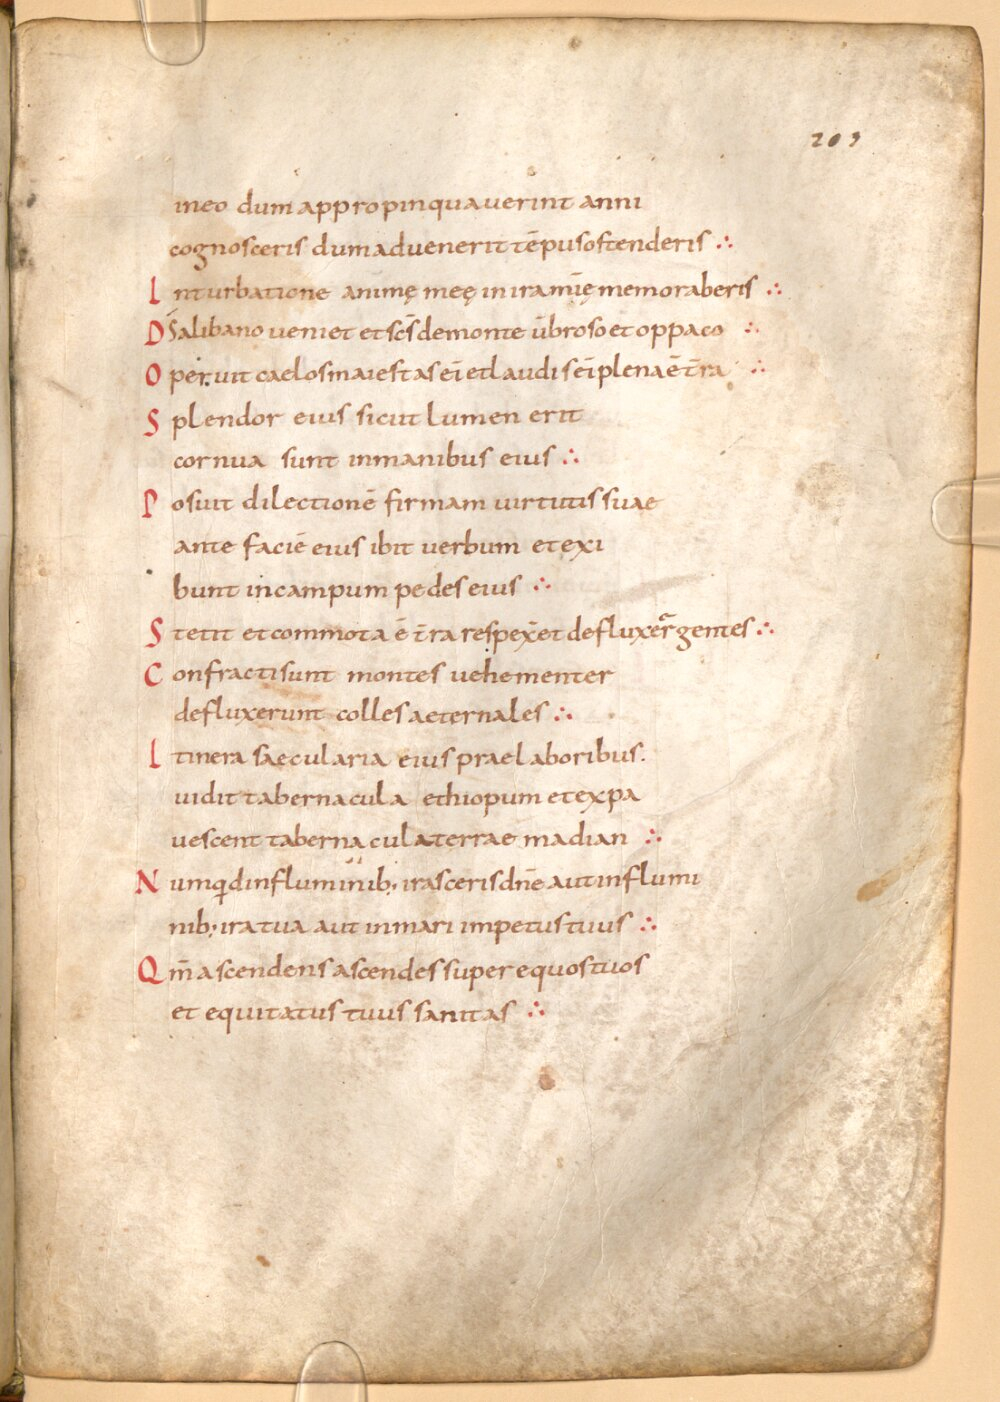 203
ineo dum appropinquaverint anni
cognosceris dum advenerit tēpus ostenderis ∴
In turbatione animę meę in ira mīę memoraberis ∴
Dś a libano veniet et scs̄ de monte ūbroso et oppaco ∴
Operuit caelos maiestas eī et laudis eī plena ē t̄ra ∴
Splendor eius sicut lumen erit
cornua sunt in manibus eius ∴
Posuit dilectionē firmam virtutis suae
ante faciē eius ibit verbum et exi
bunt in campum pedes eius ∴
Stetit et commota ē t̄ra respex̄ et defluxer̄ gentes ∴
Confracti sunt montes vehementer
defluxerunt colles aeternales ∴
Itinera saecularia eius prae laboribus.
vidit tabernacula ethiopum et expa
vescent tabernacula terrae madian ∴
Numqd in fluminib; irasceris dn̄e aut in flumi
nib; ira tua aut in mari impetus tuus ∴
Qm̄ ascendens ascendes super equos tuos
et equitatus tuus sanitas ∴